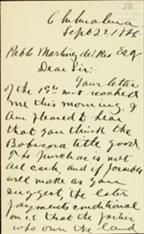 50
Chihuahua
Sept 22 1886
Pablo Martinez del Rio Esq
Dear Sir:
Your letter
of the 19th inst reached
me this morning. I
am pleased to hear
that you think the
Babicora title good.
The purchase is not
all cash, and if possible
will make as you
suggest, the later
payments conditional
on, &c that the parties
who own the land